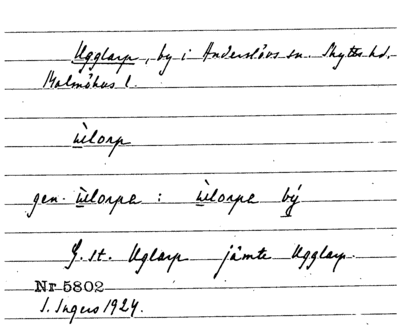 Ugglarp, by i Anderslövs sn. Skytts hd.
Malmöhus l.
ùlorp
gen. ùlorpa : ùlorpa bý
G. st. Uglarp jämte Ugglarp.
Nr 5802
I. Ingers 1924.